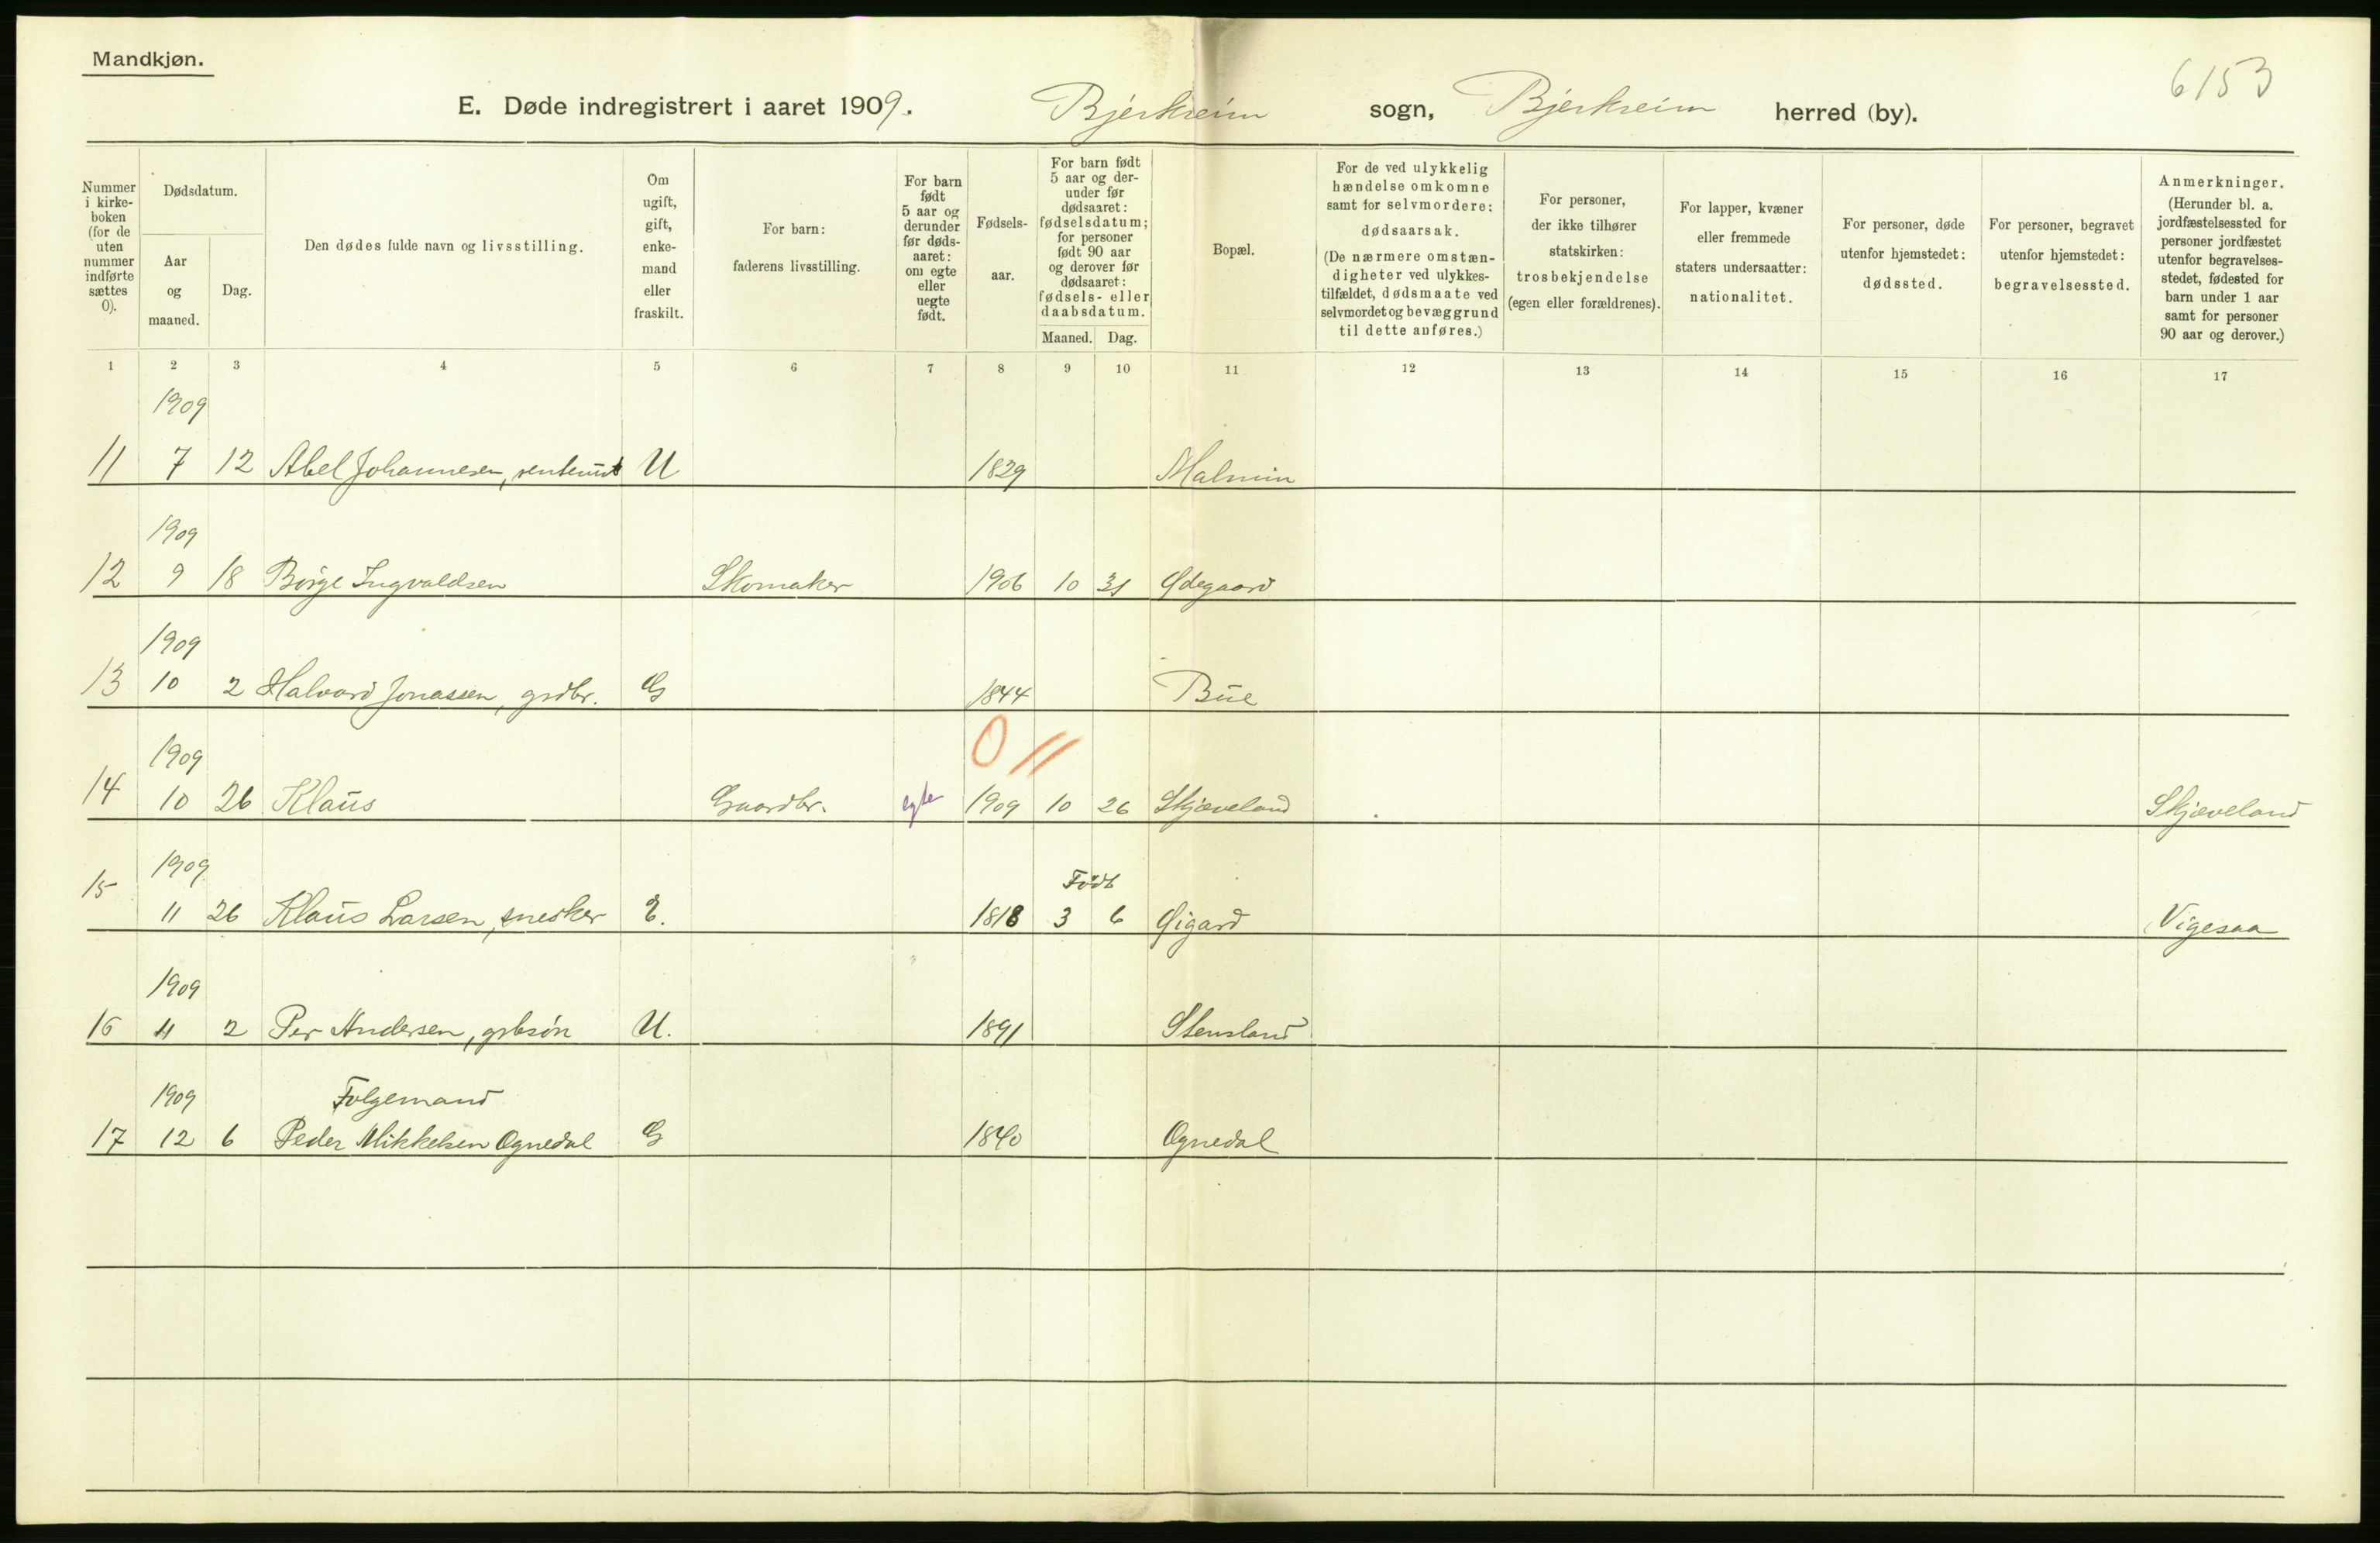 Mandkjøn.
6153
E. Døde indregistrert i aaret 1909. Bjerkreim sogn, Bjerkreim herred (by).
Nummer i kirke-boken (for de uten nummer indførte sættes 0).
Dødsdatum.
Aar og maaned.
Dag.
Den dødes fulde navn og livsstilling.
Om ugift, gift, enke-mand eller fraskilt.
For barn: faderens livsstilling.
For barn født 5 aar og derunder før døds-aaret: om egte eller uegte født.
Fødsels-aar.
For barn født 5 aar og der-under før dødsaaret: fødselsdatum; for personer født 90 aar og derover før dødsaaret: fødsels- eller daabsdatum.
Maaned. Dag.
Bopæl.
For de ved ulykkelig hændelse omkomne samt for selvmordere: dødsaarsak. (De nærmere omstæn-digheter ved ulykkes-tilfældet, dødsmaate ved selvmordet og bevæggrund til dette anføres.)
For personer, der ikke tilhører statskirken: trosbekjendelse (egen eller forældrenes).
For lapper, kvæner eller fremmede staters undersaatter: nationalitet.
For personer, døde utenfor hjemstedet: dødssted.
For personer, begravet utenfor hjemstedet: begravelsessted.
Anmerkninger. (Herunder bl. a. jordfæstelsessted for personer jordfæstet utenfor begravelses-stedet, fødested for barn under 1 aar samt for personer 90 aar og derover.)
1 2 3 4 5 6 7 8 9 10 11 12 13 14 15 16 17
1909
11 7 12 Abel Johannesen, U 1829 Malmin
1909
12 9 18 Børge Ingvaldsen Skomaker 1906 10 31 Ødegaard
1909
13 10 2 Halvard Jonassen, grdbr. G 1844 Bue
0 11
1909
14 10 26 Klaus Gaardbr. egte 1909 10 26 Skjæveland Skjæveland
1909 Født
15 11 26 Klaus Larsen, snesker E. 1818 3 6 Øigard Vigesaa
1909
16 11 2 Per Andersen, gbrsøn U. 1891 Stensland
1909 Folgemand
17 12 6 Peder Mikkelsen Ognedal G 1840 Ognedal